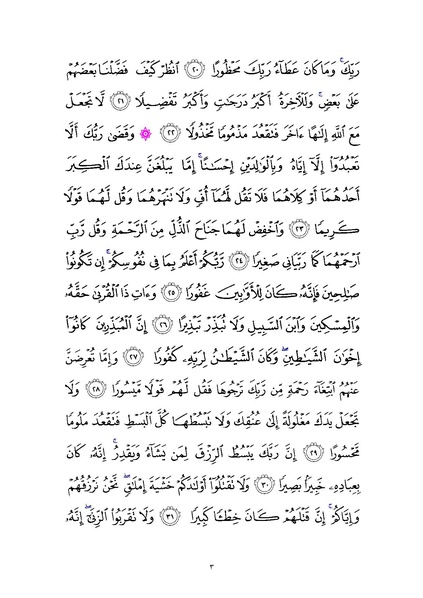 رَبِّكَۚ وَمَا كَانَ عَطَآءُ رَبِّكَ مَحْظُورًا ٢٠ ٱنظُرْ كَيْفَ فَضَّلْنَا بَعْضَهُمْ
عَلَىٰ بَعْضٍۚ وَلَلْـَٔاخِرَةُ أَكْبَرُ دَرَجَٰتٍ وَأَكْبَرُ تَفْضِيلًا ٢١ لَّا تَجْعَلْ
مَعَ ٱللَّهِ إِلَٰهًا ءَاخَرَ فَتَقْعُدَ مَذْمُومًا مَّخْذُولًا ٢٢ ۞ وَقَضَىٰ رَبُّكَ أَلَّا
تَعْبُدُوٓا۟ إِلَّآ إِيَّاهُ وَبِٱلْوَٰلِدَيْنِ إِحْسَٰنًاۚ إِمَّا يَبْلُغَنَّ عِندَكَ ٱلْكِبَرَ
أَحَدُهُمَآ أَوْ كِلَاهُمَا فَلَا تَقُل لَّهُمَآ أُفٍّ وَلَا تَنْهَرْهُمَا وَقُل لَّهُمَا قَوْلًا
كَرِيمًا ٢٣ وَٱخْفِضْ لَهُمَا جَنَاحَ ٱلذُّلِّ مِنَ ٱلرَّحْمَةِ وَقُل رَّبِّ
ٱرْحَمْهُمَا كَمَا رَبَّيَانِى صَغِيرًا ٢٤ رَّبُّكُمْ أَعْلَمُ بِمَا فِى نُفُوسِكُمْۚ إِن تَكُونُوا۟
صَٰلِحِينَ فَإِنَّهُۥ كَانَ لِلْأَوَّٰبِينَ غَفُورًا ٢٥ وَءَاتِ ذَا ٱلْقُرْبَىٰ حَقَّهُۥ
وَٱلْمِسْكِينَ وَٱبْنَ ٱلسَّبِيلِ وَلَا تُبَذِّرْ تَبْذِيرًا ٢٦ إِنَّ ٱلْمُبَذِّرِينَ كَانُوٓا۟
إِخْوَٰنَ ٱلشَّيَٰطِينِۖ وَكَانَ ٱلشَّيْطَٰنُ لِرَبِّهِۦ كَفُورًا ٢٧ وَإِمَّا تُعْرِضَنَّ
عَنْهُمُ ٱبْتِغَآءَ رَحْمَةٍ مِّن رَّبِّكَ تَرْجُوهَا فَقُل لَّهُمْ قَوْلًا مَّيْسُورًا ٢٨ وَلَا
تَجْعَلْ يَدَكَ مَغْلُولَةً إِلَىٰ عُنُقِكَ وَلَا تَبْسُطْهَا كُلَّ ٱلْبَسْطِ فَتَقْعُدَ مَلُومًا
مَّحْسُورًا ٢٩ إِنَّ رَبَّكَ يَبْسُطُ ٱلرِّزْقَ لِمَن يَشَآءُ وَيَقْدِرُۚ إِنَّهُۥ كَانَ
بِعِبَادِهِۦ خَبِيرًۢا بَصِيرًا ٣٠ وَلَا تَقْتُلُوٓا۟ أَوْلَٰدَكُمْ خَشْيَةَ إِمْلَٰقٍۖ نَّحْنُ نَرْزُقُهُمْ
وَإِيَّاكُمْۚ إِنَّ قَتْلَهُمْ كَانَ خِطْـًٔا كَبِيرًا ٣١ وَلَا تَقْرَبُوا۟ ٱلزِّنَىٰٓۖ إِنَّهُۥ
٣